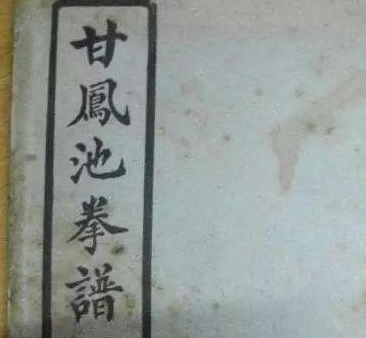 甘鳳池拳譜